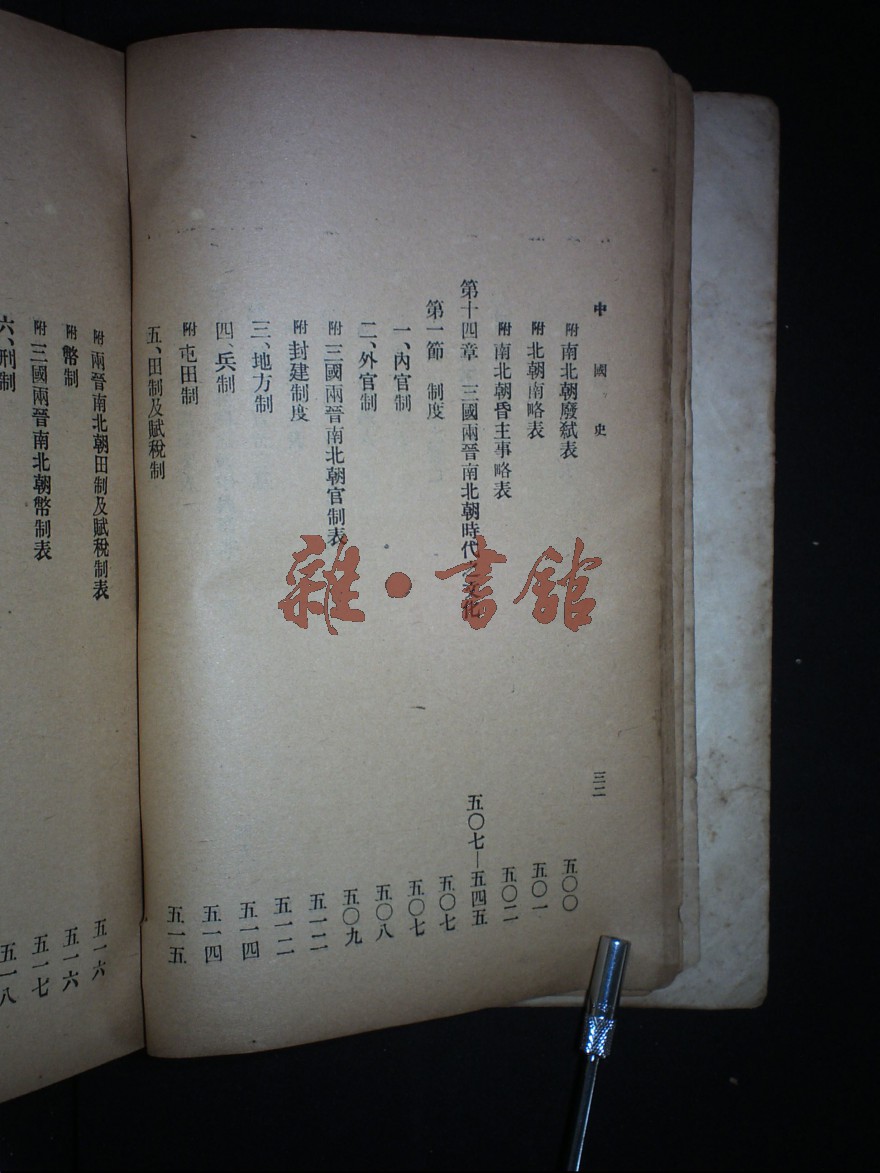 中國史
三二
附南北朝廢弒表 五〇〇
附北朝南略表 五〇一
附南北朝昏主事略表 五〇二
第十四章 三國兩晉南北朝時代之文化 五〇七—五四五
第一節 制度 五〇七
一、內官制 五〇七
二、外官制 五〇八
附三國兩晉南北朝官制表 五〇九
附封建制度 五一二
三、地方制 五一二
四、兵制 五一四
附屯田制 五一四
五、田制及賦稅制 五一五
附兩晉南北朝田制及賦稅制表 五一六
附幣制 五一六
附三國兩晉南北朝幣制表 五一七
六、刑制 五一八
雜·書館